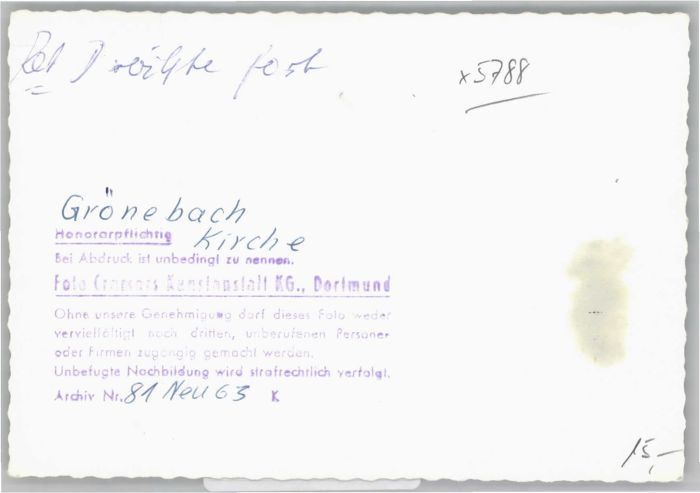 x5788
Grönebach
Honorarpflichtig Kirche
Bei Abdruck ist unbedingt zu nennen.
Foto Cramers Kunstanstalt KG., Dortmund
Ohne unsere Genehmigung darf dieses Foto weder
vervielfältigt noch dritten, unberufenen Personen
oder Firmen zugängig gemacht werden.
Unbefugte Nachbildung wird strafrechtlich verfolgt.
Archiv Nr. 81 Neu 63 K
15,-